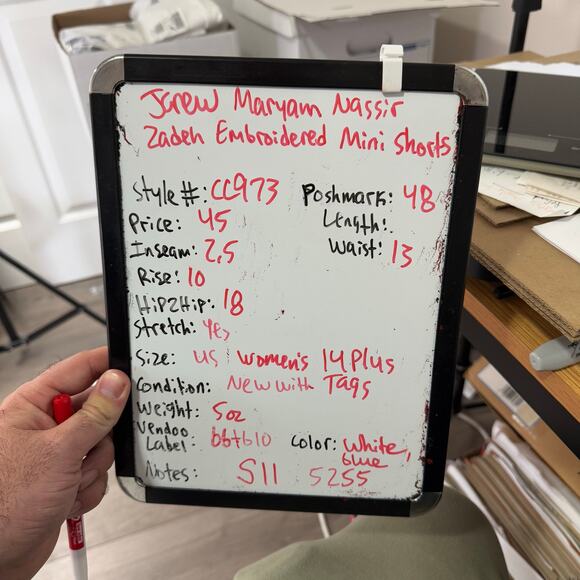 Jcrew Maryam Nassir
Zadeh Embroidered Mini Shorts
Style#: CC973
Poshmark: 48
Price: 45
Length:
Inseam: 2.5
Waist: 13
Rise: 10
Hip2Hip: 18
Stretch: Yes
Size: US Women's 14 Plus
Condition: New with Tags
Weight: 5oz
Vendoo
Label: bbtb10
Color: White,
blue
Notes: S11 5255